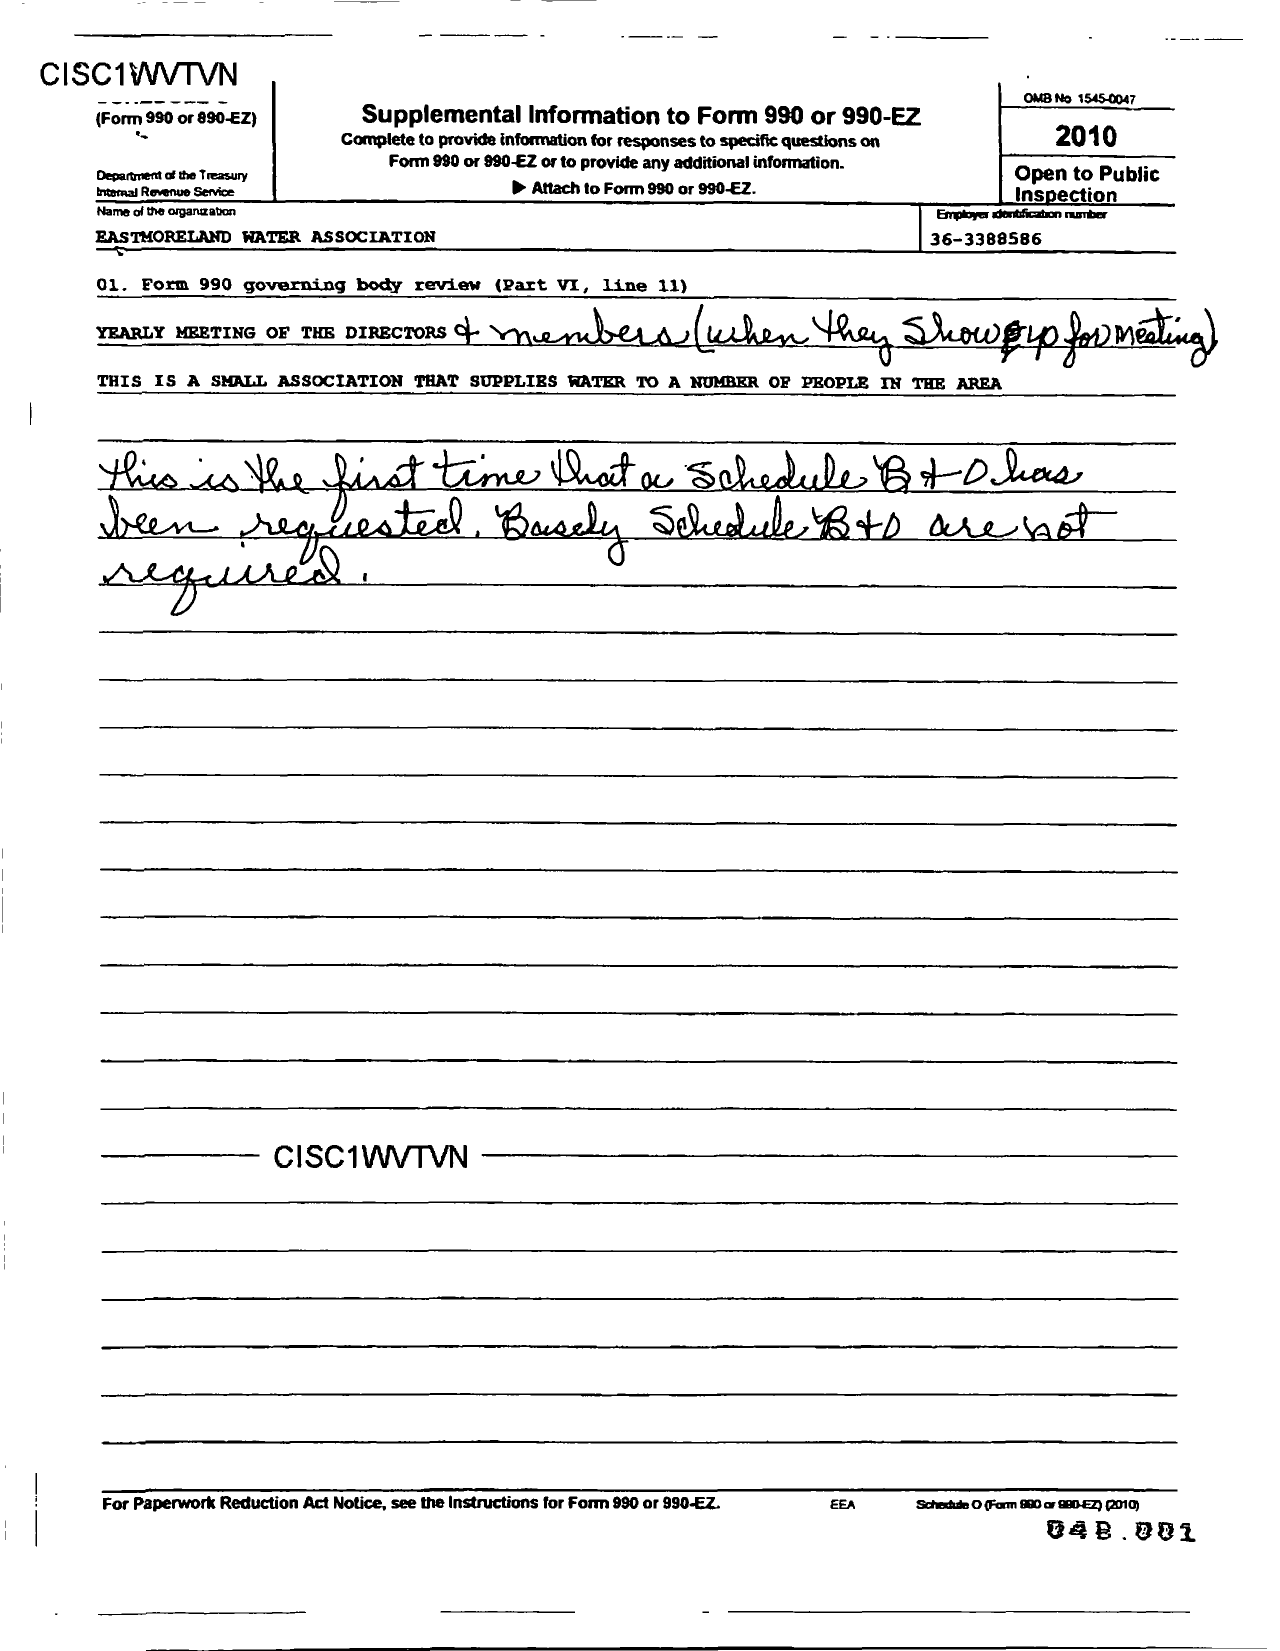 CISC1WVTVN
(Form 990 or 890-EZ)
Department of the Treasury
Internal Revenue Service
Supplemental Information to Form 990 or 990-EZ
Complete to provide information for responses to specific questions on
Form 990 or 990-EZ or to provide any additional information.
▶ Attach to Form 990 or 990-EZ.
OMB No 1545-0047
2010
Open to Public
Inspection
Name of the organization
EASTMORELAND WATER ASSOCIATION
Employer identification number
36-3388586
01. Form 990 governing body review (Part VI, line 11)
YEARLY MEETING OF THE DIRECTORS & members (when they show up for meeting)
THIS IS A SMALL ASSOCIATION THAT SUPPLIES WATER TO A NUMBER OF PEOPLE IN THE AREA
this is the first time that a Schedule B + D has
been requested. Basely Schedule B + D are not
required.
CISC1WVTVN
For Paperwork Reduction Act Notice, see the Instructions for Form 990 or 990-EZ.
EEA
Schedule O (Form 990 or 990-EZ) (2010)
04B.001